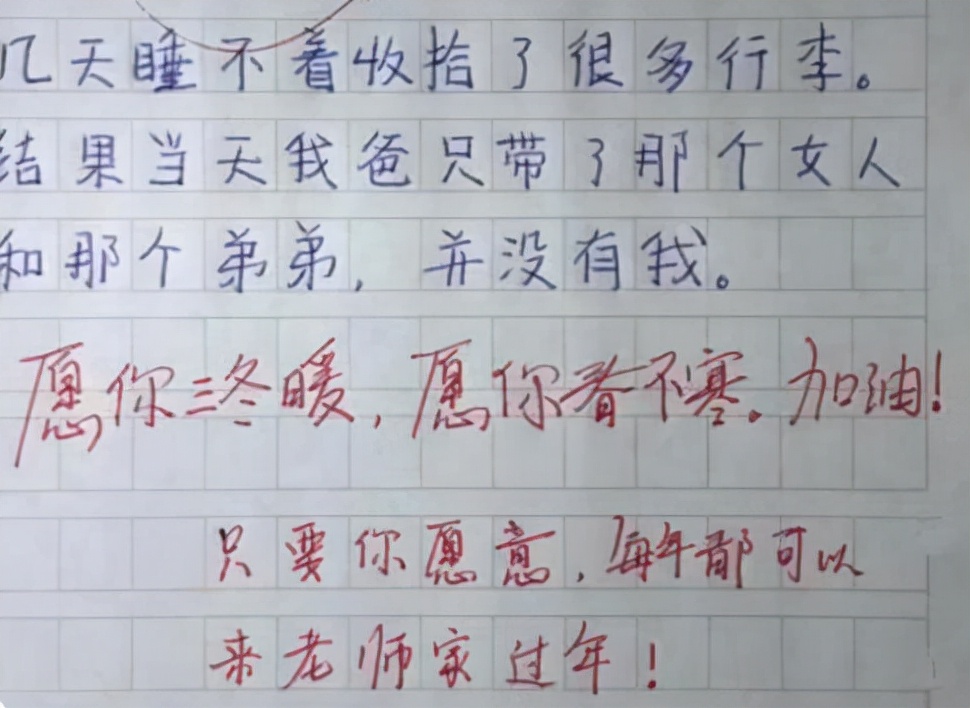 几天睡不着收拾了很多行李。
结果当天我爸只带了那个女人
和那个弟弟，并没有我。
愿你三冬暖，愿你春不寒。加油！
只要你愿意，每年都可以
来老师家过年！